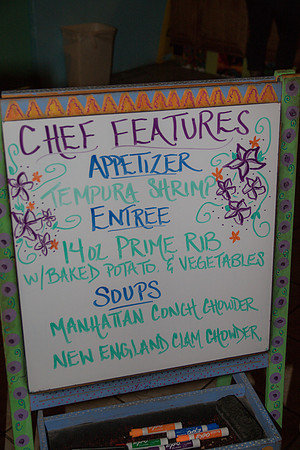 CHEF FEATURES
APPETIZER
TEMPURA SHRIMP
ENTREE
14 OZ PRIME RIB
W/ BAKED POTATO. & VEGETABLES
SOUPS
MANHATTAN CONCH CHOWDER
NEW ENGLAND CLAM CHOWDER